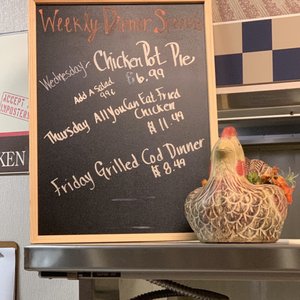 Weekly Dinner Specials
Wednesday - Chicken Pot Pie
$6.99
Add A Salad
99¢
Thursday All you Can Eat Fried
Chicken
$11.49
Friday Grilled Cod Dinner
$8.49
ACCEPT
IMPOSTERS
KEN